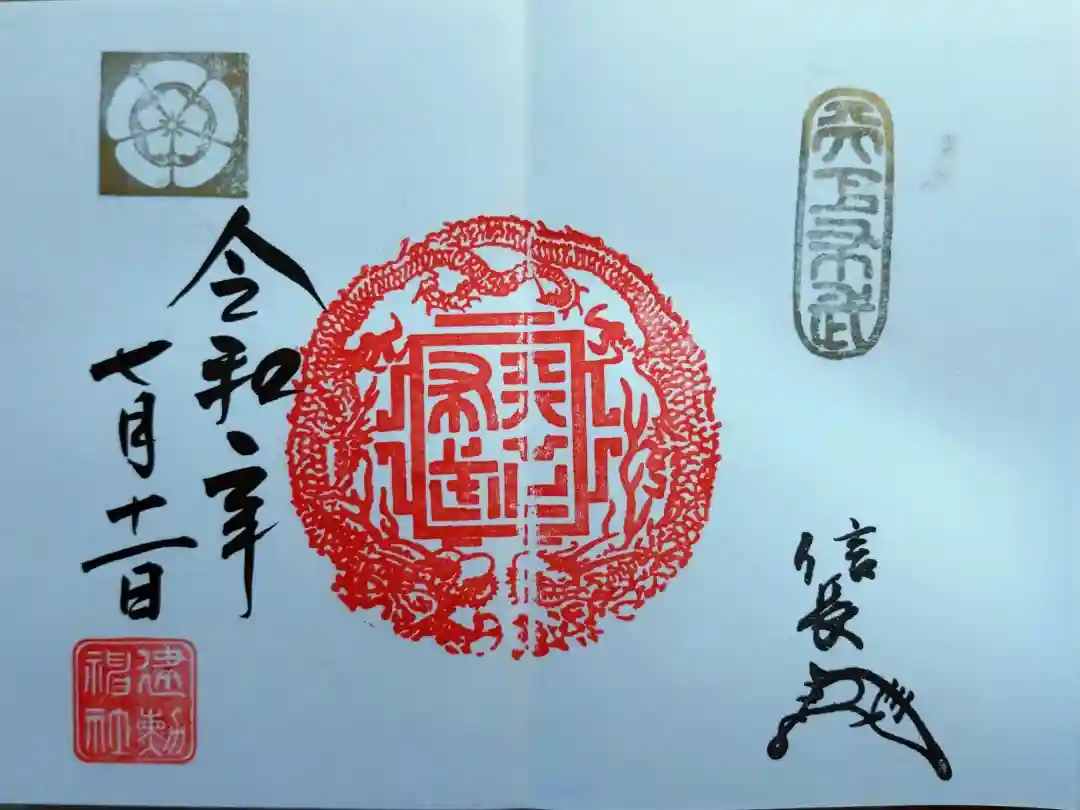 天下布武
信長
天下
布武
令和 年
七月十一日
建勲
神社